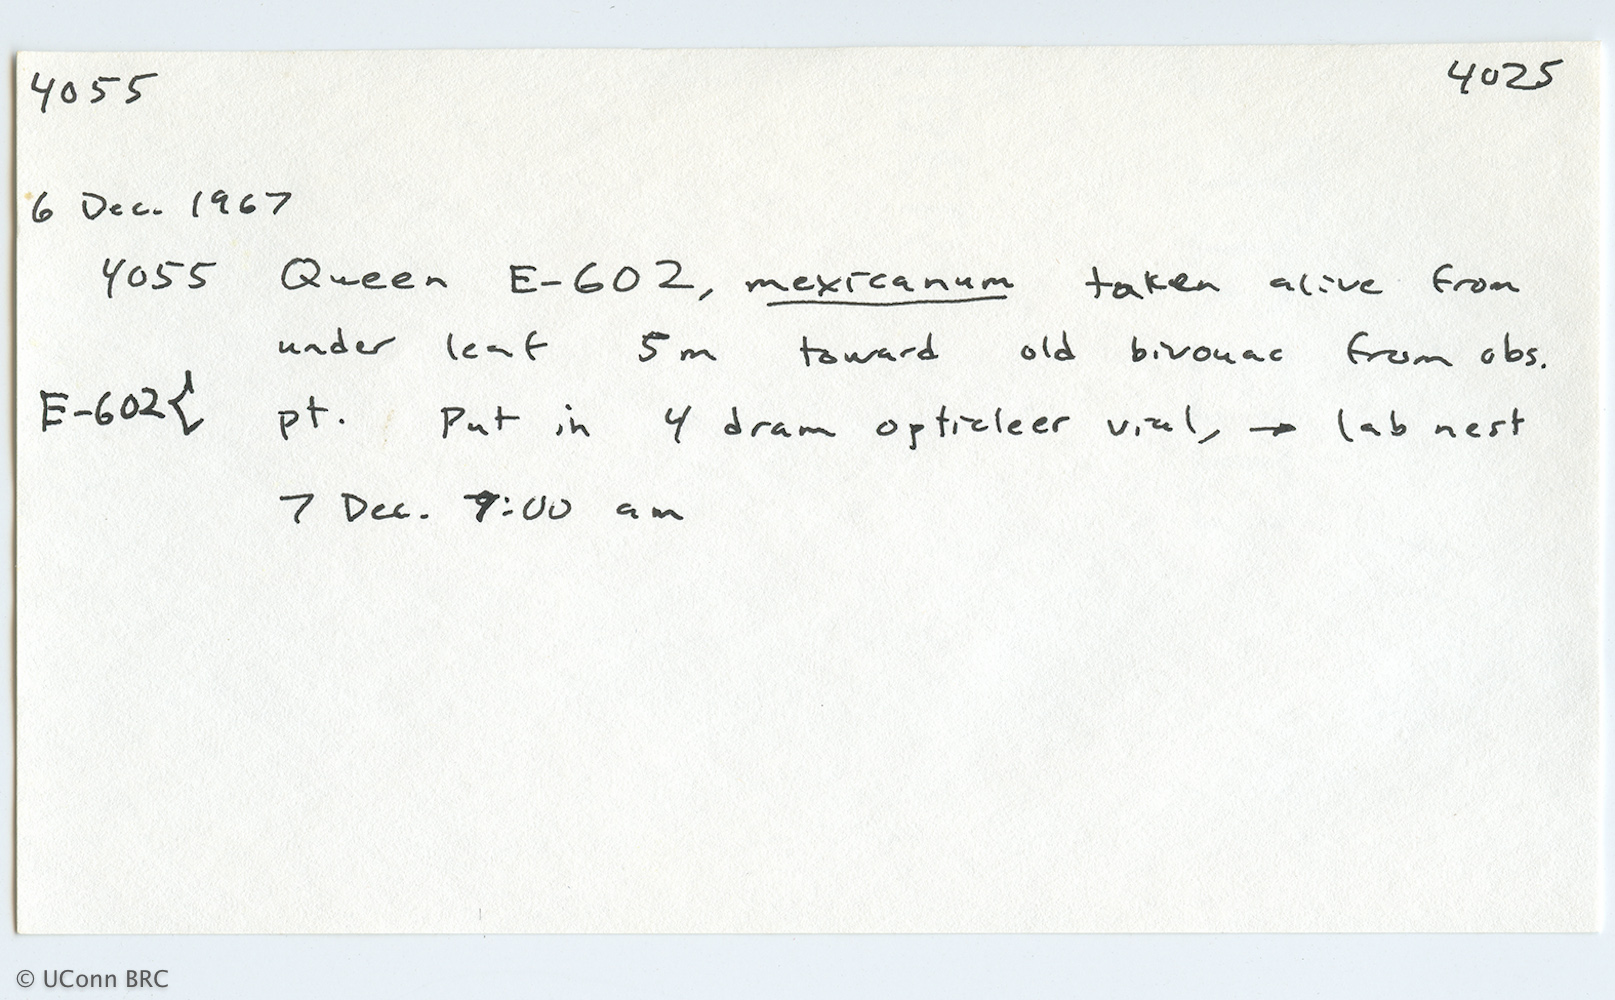 4055 4025
6 Dec. 1967
4055 Queen E-602, mexicanum taken alive from
under leaf 5m toward old bivouac from obs.
E-602{ pt. Put in 4 dram opticleer vial, → lab nest
7 Dec. 9:00 am
© UConn BRC